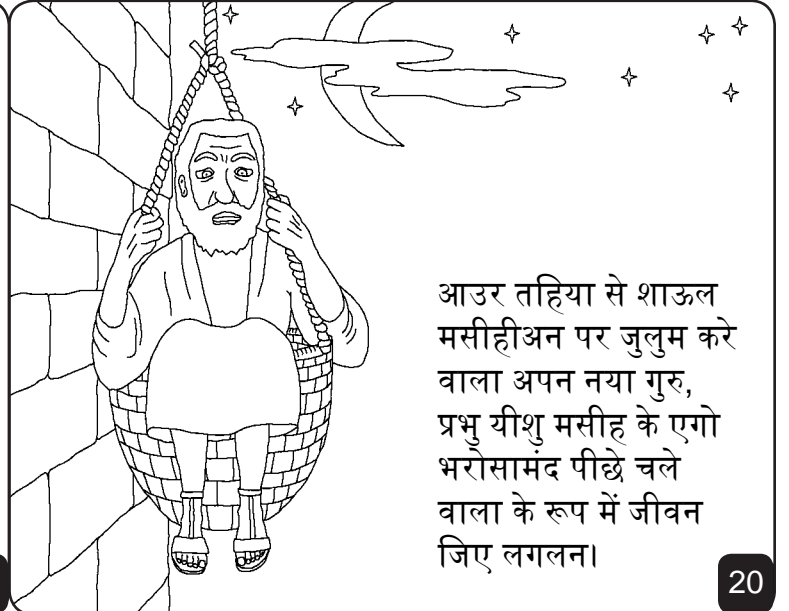 आउर तहिया से शाऊल
मसीहीअन पर जुलुम करे
वाला अपन नया गुरु,
प्रभु यीशु मसीह के एगो
भरोसामंद पीछे चले
वाला के रूप में जीवन
जिए लगलन।
20